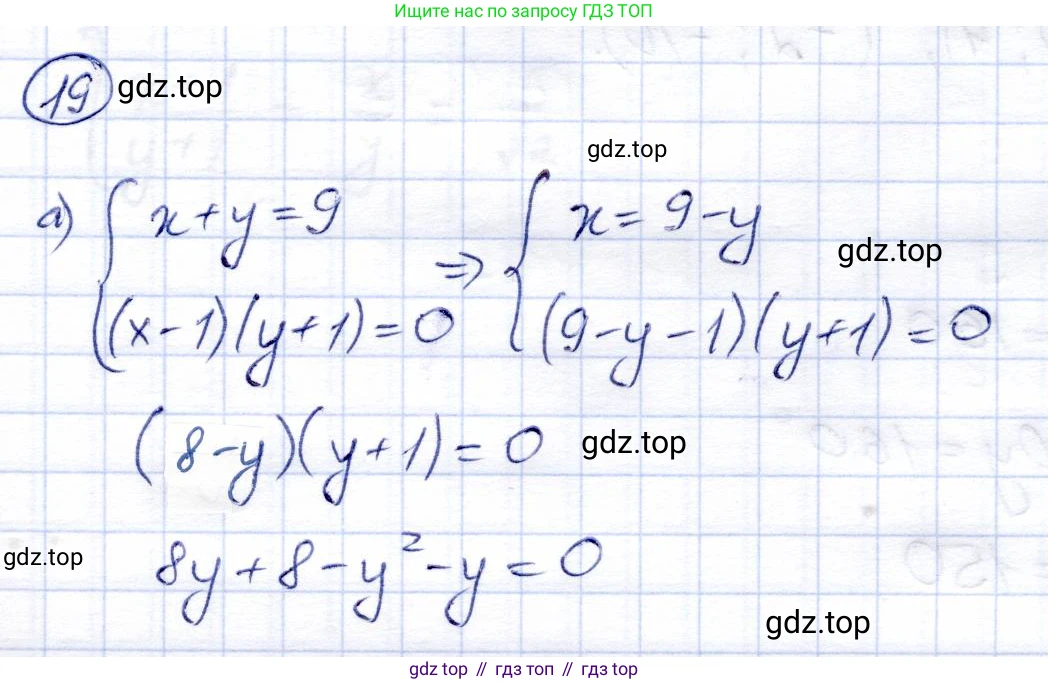 Ищите нас по запросу ГДЗ ТОП
19 gdz.top
gdz.top
а) { x + y = 9 => { x = 9 - y
gdz.top
(x - 1)(y + 1) = 0 (9 - y - 1)(y + 1) = 0
(8 - y)(y + 1) = 0 gdz.top
gdz.top 8y + 8 - y² - y = 0
gdz.top
gdz top // гдз топ // gdz top